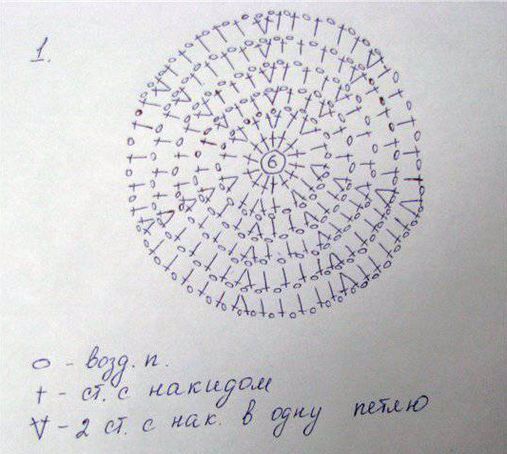 1.
6
o - возд. п.
† - ст. с накидом
V - 2 ст. с нак. в одну петлю